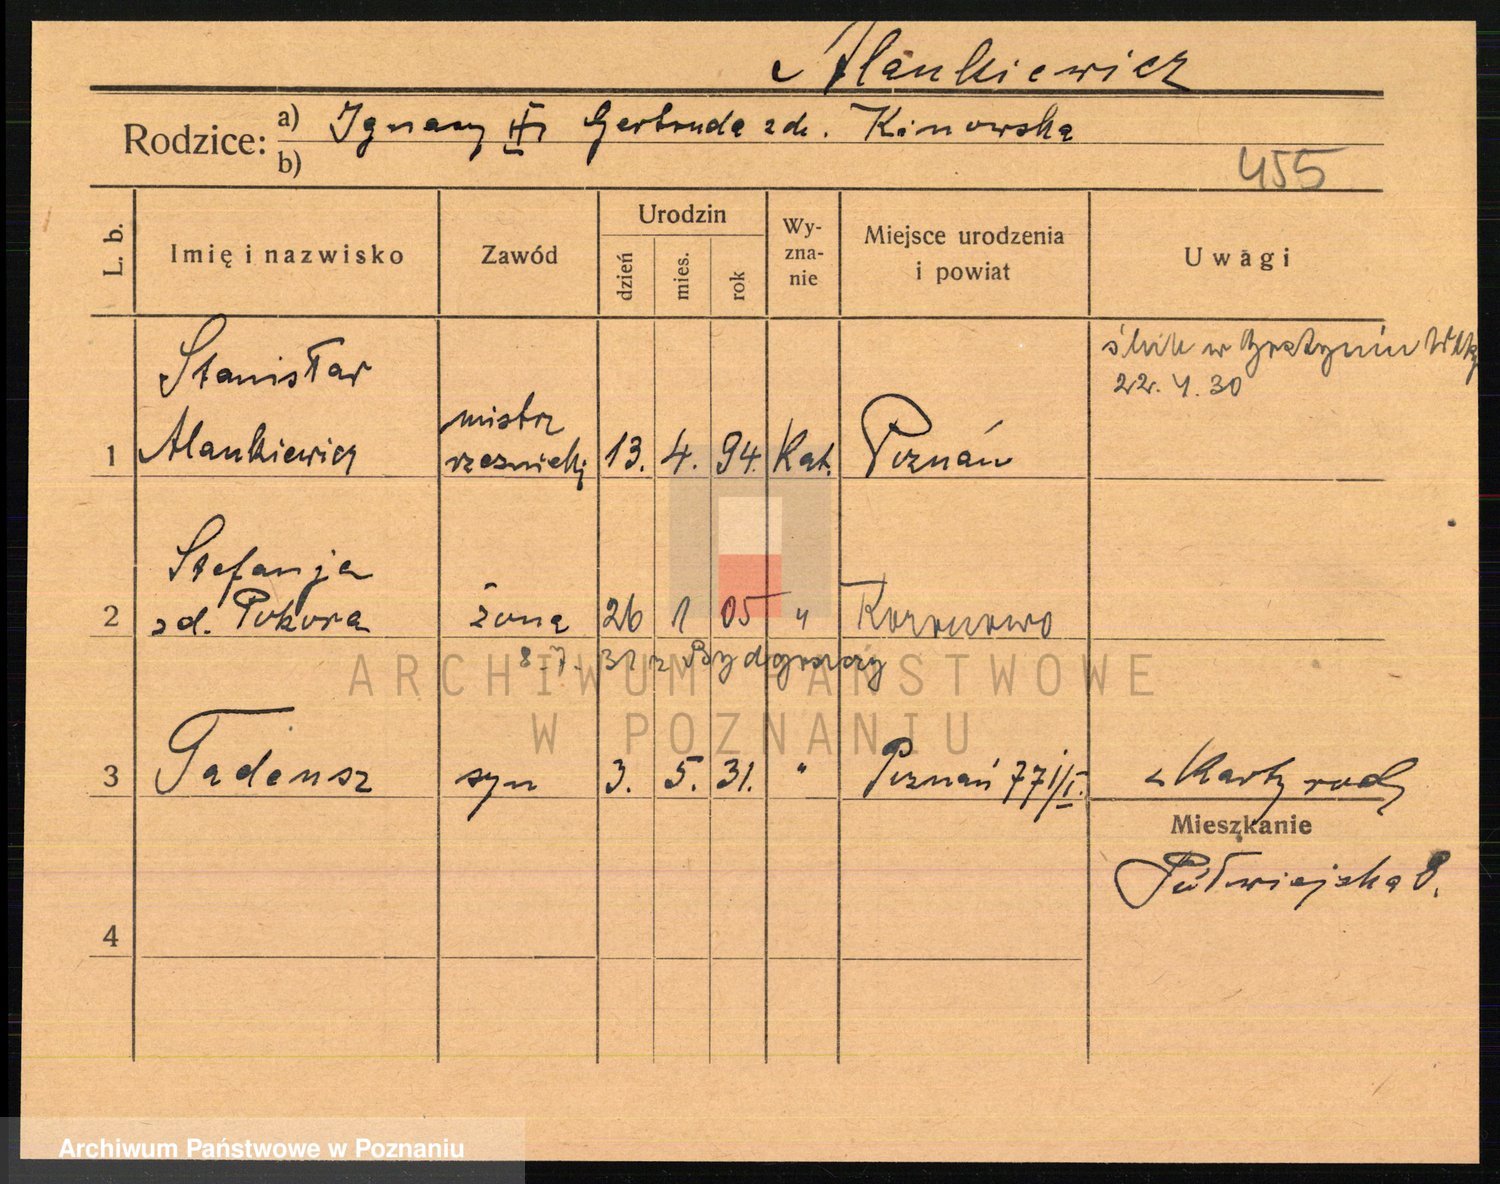 Alankiewicz
Rodzice: a) Ignacy III Gertruda zd. Kinowska
b)
455
L. b.
Imię i nazwisko
Zawód
Urodzin
dzień
mies.
rok
Wy-
zna-
nie
Miejsce urodzenia
i powiat
Uwagi
Stanisław
Alankiewicz
mistrz
rzeźnicki
1
13. 4. 94. Kat. Poznań
w
22. 4. 30
Stefanja
2 zd. Pokora żona 26 1 05 "
8. 7. 31 z Bydgoszczy
3 Tadeusz syn 3. 5. 31. " Poznań 771/I.
z Karty rodz
Mieszkanie
Półwiejska 8.
4
ARCHIWUM PAŃSTWOWE
W POZNANIU
Archiwum Państwowe w Poznaniu